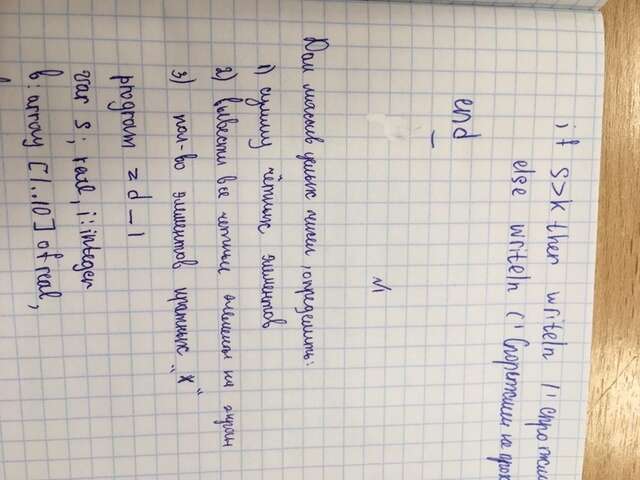 if S>k then writeln ('спортсм
else writeln ('Спортсмен не прох
end
№1
Дан массив целых чисел, определить:
1) сумму чётных элементов
2) вывести все четные элемены на экран
3) кол-во элементов кратных "х"
program zd-1
var S: real, i: integer
b: array [1..10] of real;